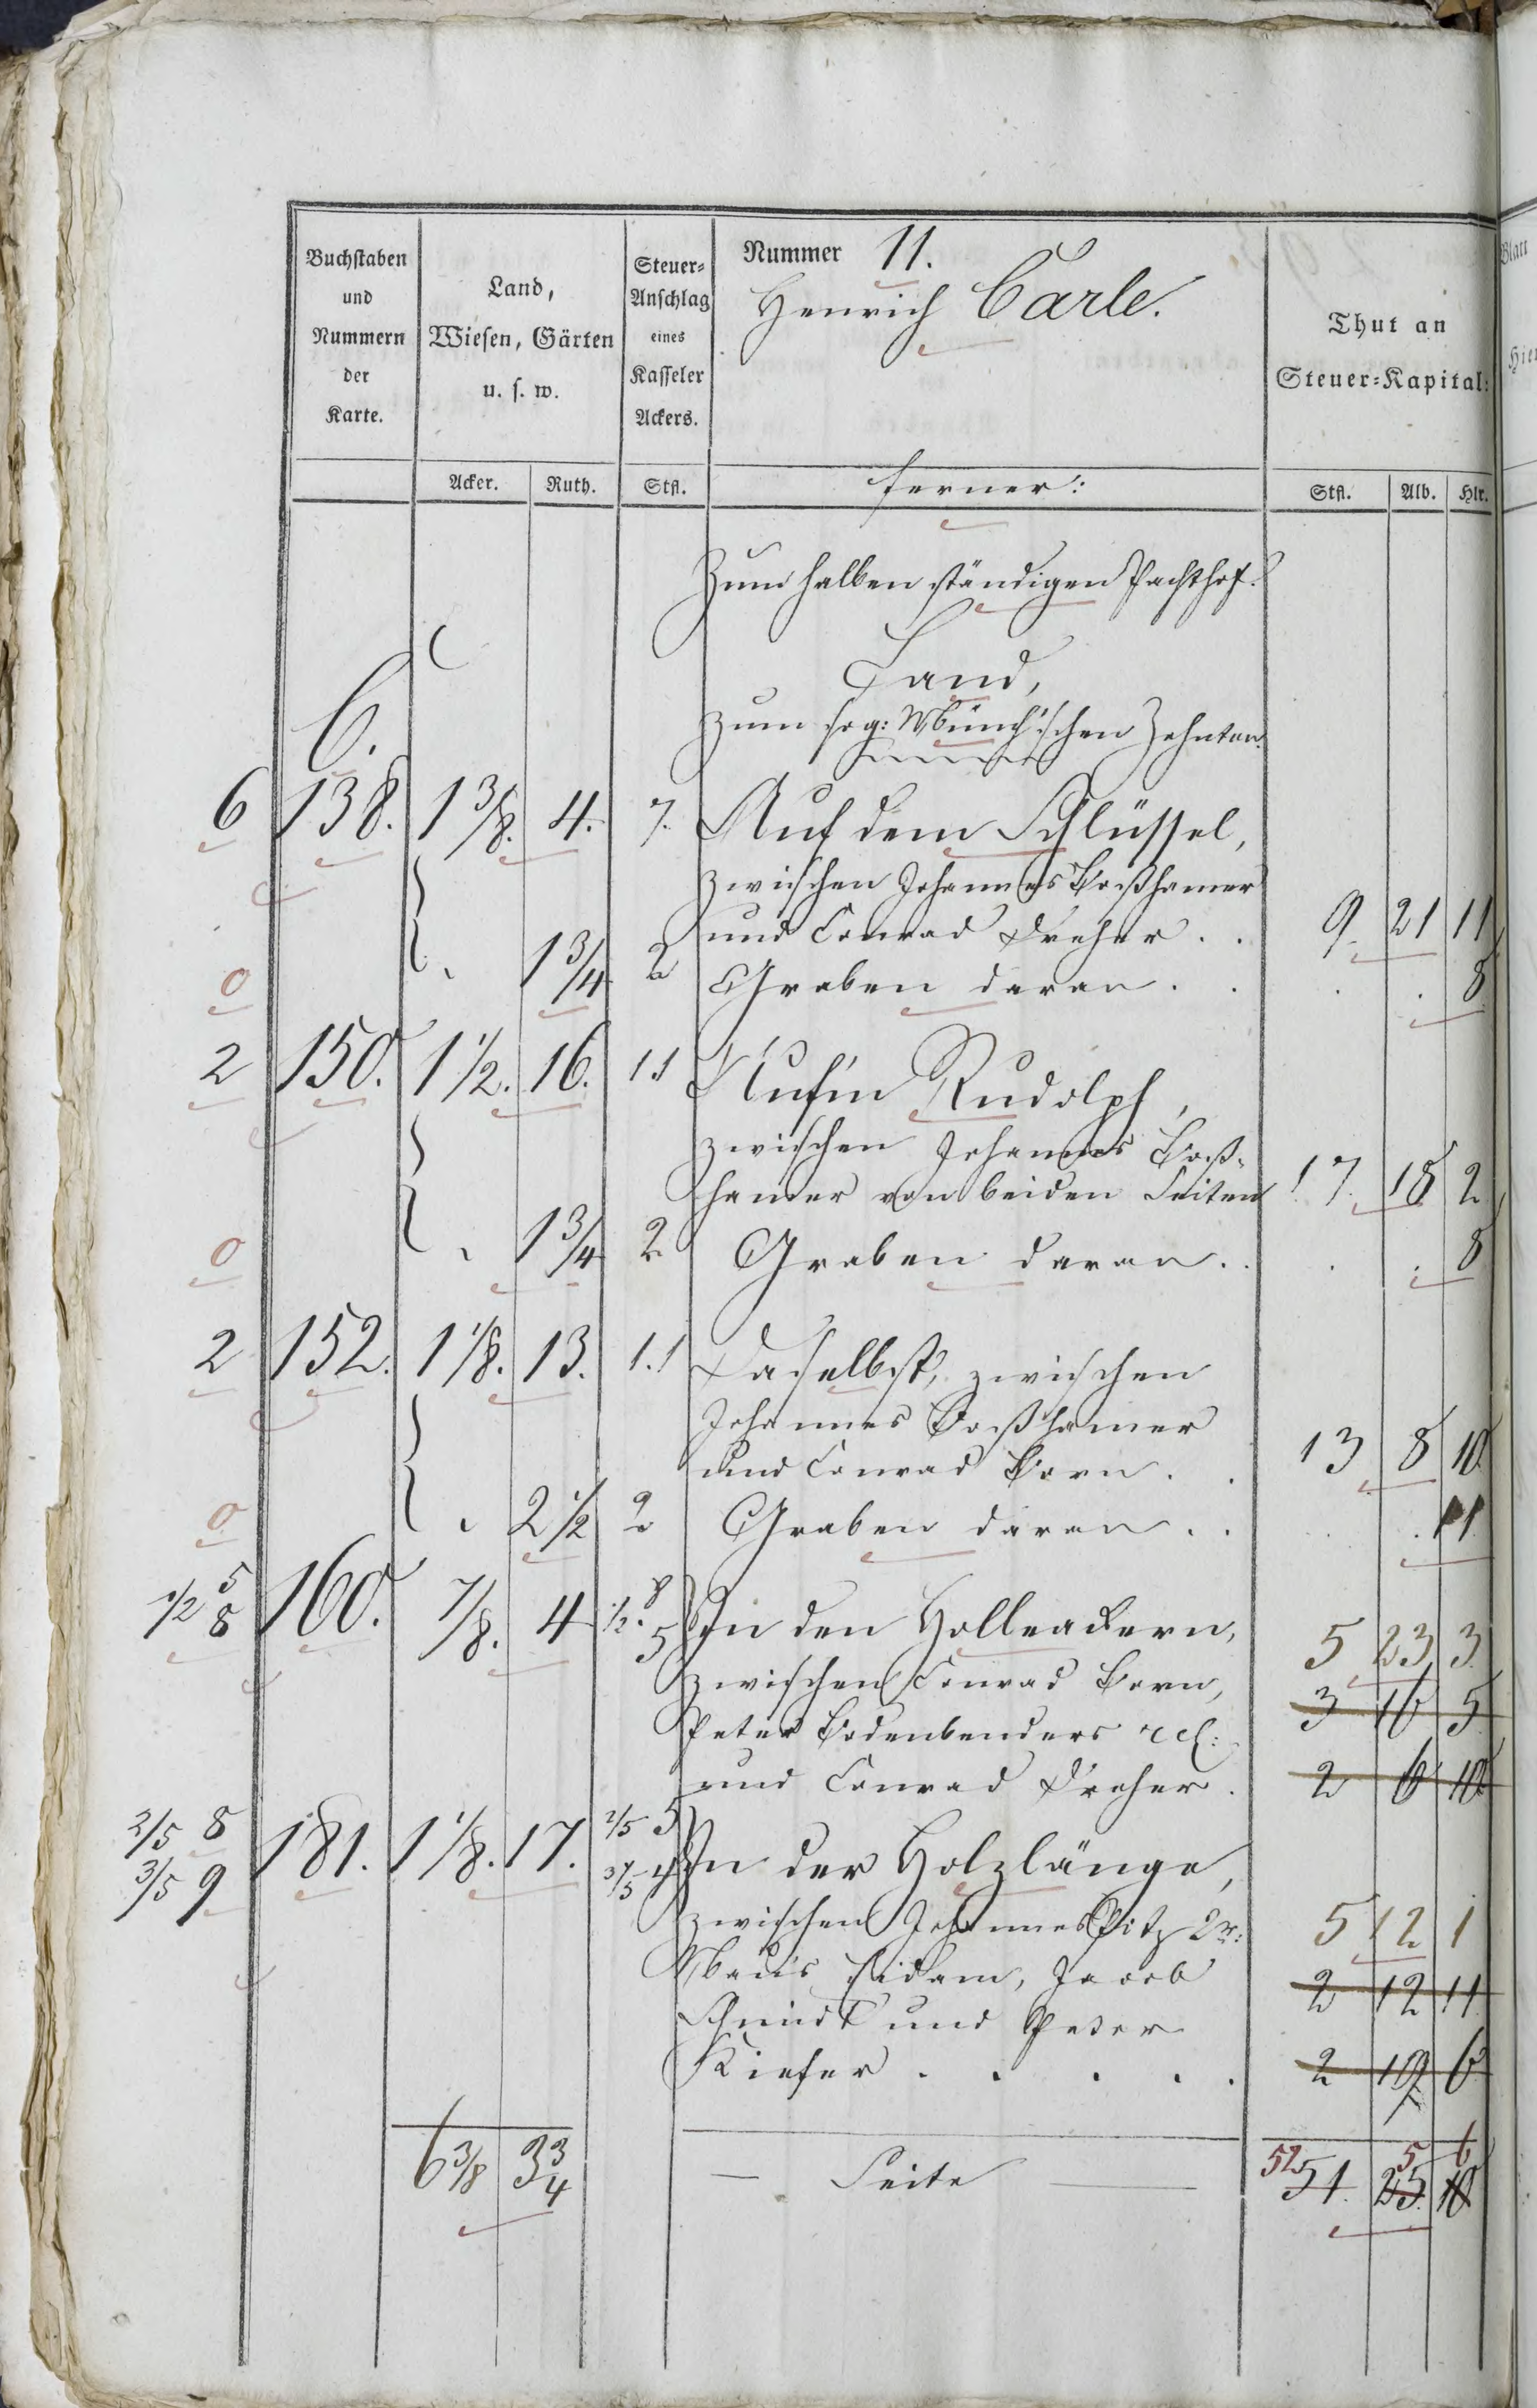 Buchstaben und Nummern der Karte.
Land, Wiesen, Gärten u. s. w.
Steuer-Anschlag eines Kasseler Ackers.
Nummer 11.
Henrich Carle.
Thut an Steuer-Kapital:
Acker. Ruth. Stfl. ferner: Stfl. Alb. Hlr.
Zum halben ständigen Pachthof.
Land,
C.
zum sog: Münch'schen Zehnten.
6 138. 1 3/8. 4. 7. Auf dem Schlüssel,
zwischen Johannes Boßhamer
und Conrad Dreher . . 9. 21 11
0 1 3/4 2 Graben daran . . . . 8
2 150. 1 1/2. 16. 11 Rudolph,
zwischen Johannes Boß-
hamer von beiden Seiten 17. 18 2
0 1 3/4 2 Graben daran . . . . 8
2 152. 1 1/8. 13. 1.1 Daselbst, zwischen
Johannes Boßhamer
und Conrad Born . . 13 8 10
0 2 1/2 2 Graben daran . . . . 11
1/2 5 8 160. 7/8. 4 1/2. 8 5 In den Holleackern, 5 23 3
zwischen Conrad Born, 3 16 5
Peter Bodenbenders rel:
und Conrad Dreher . 2 6 10
2/5 8 3/5 9 181. 1 1/8. 17. 2/5 5 3/5 4 In der Holzlänge,
zwischen Johannes Pitz 2r: 5 12 1
Maus Eidam, Jacob 2 12 11
Schmidt und Peter
Kiefer . . . . . 2 19 6
6 3/8 33/4 — Seite — 52 5 6
51. 25. 10
Blatt